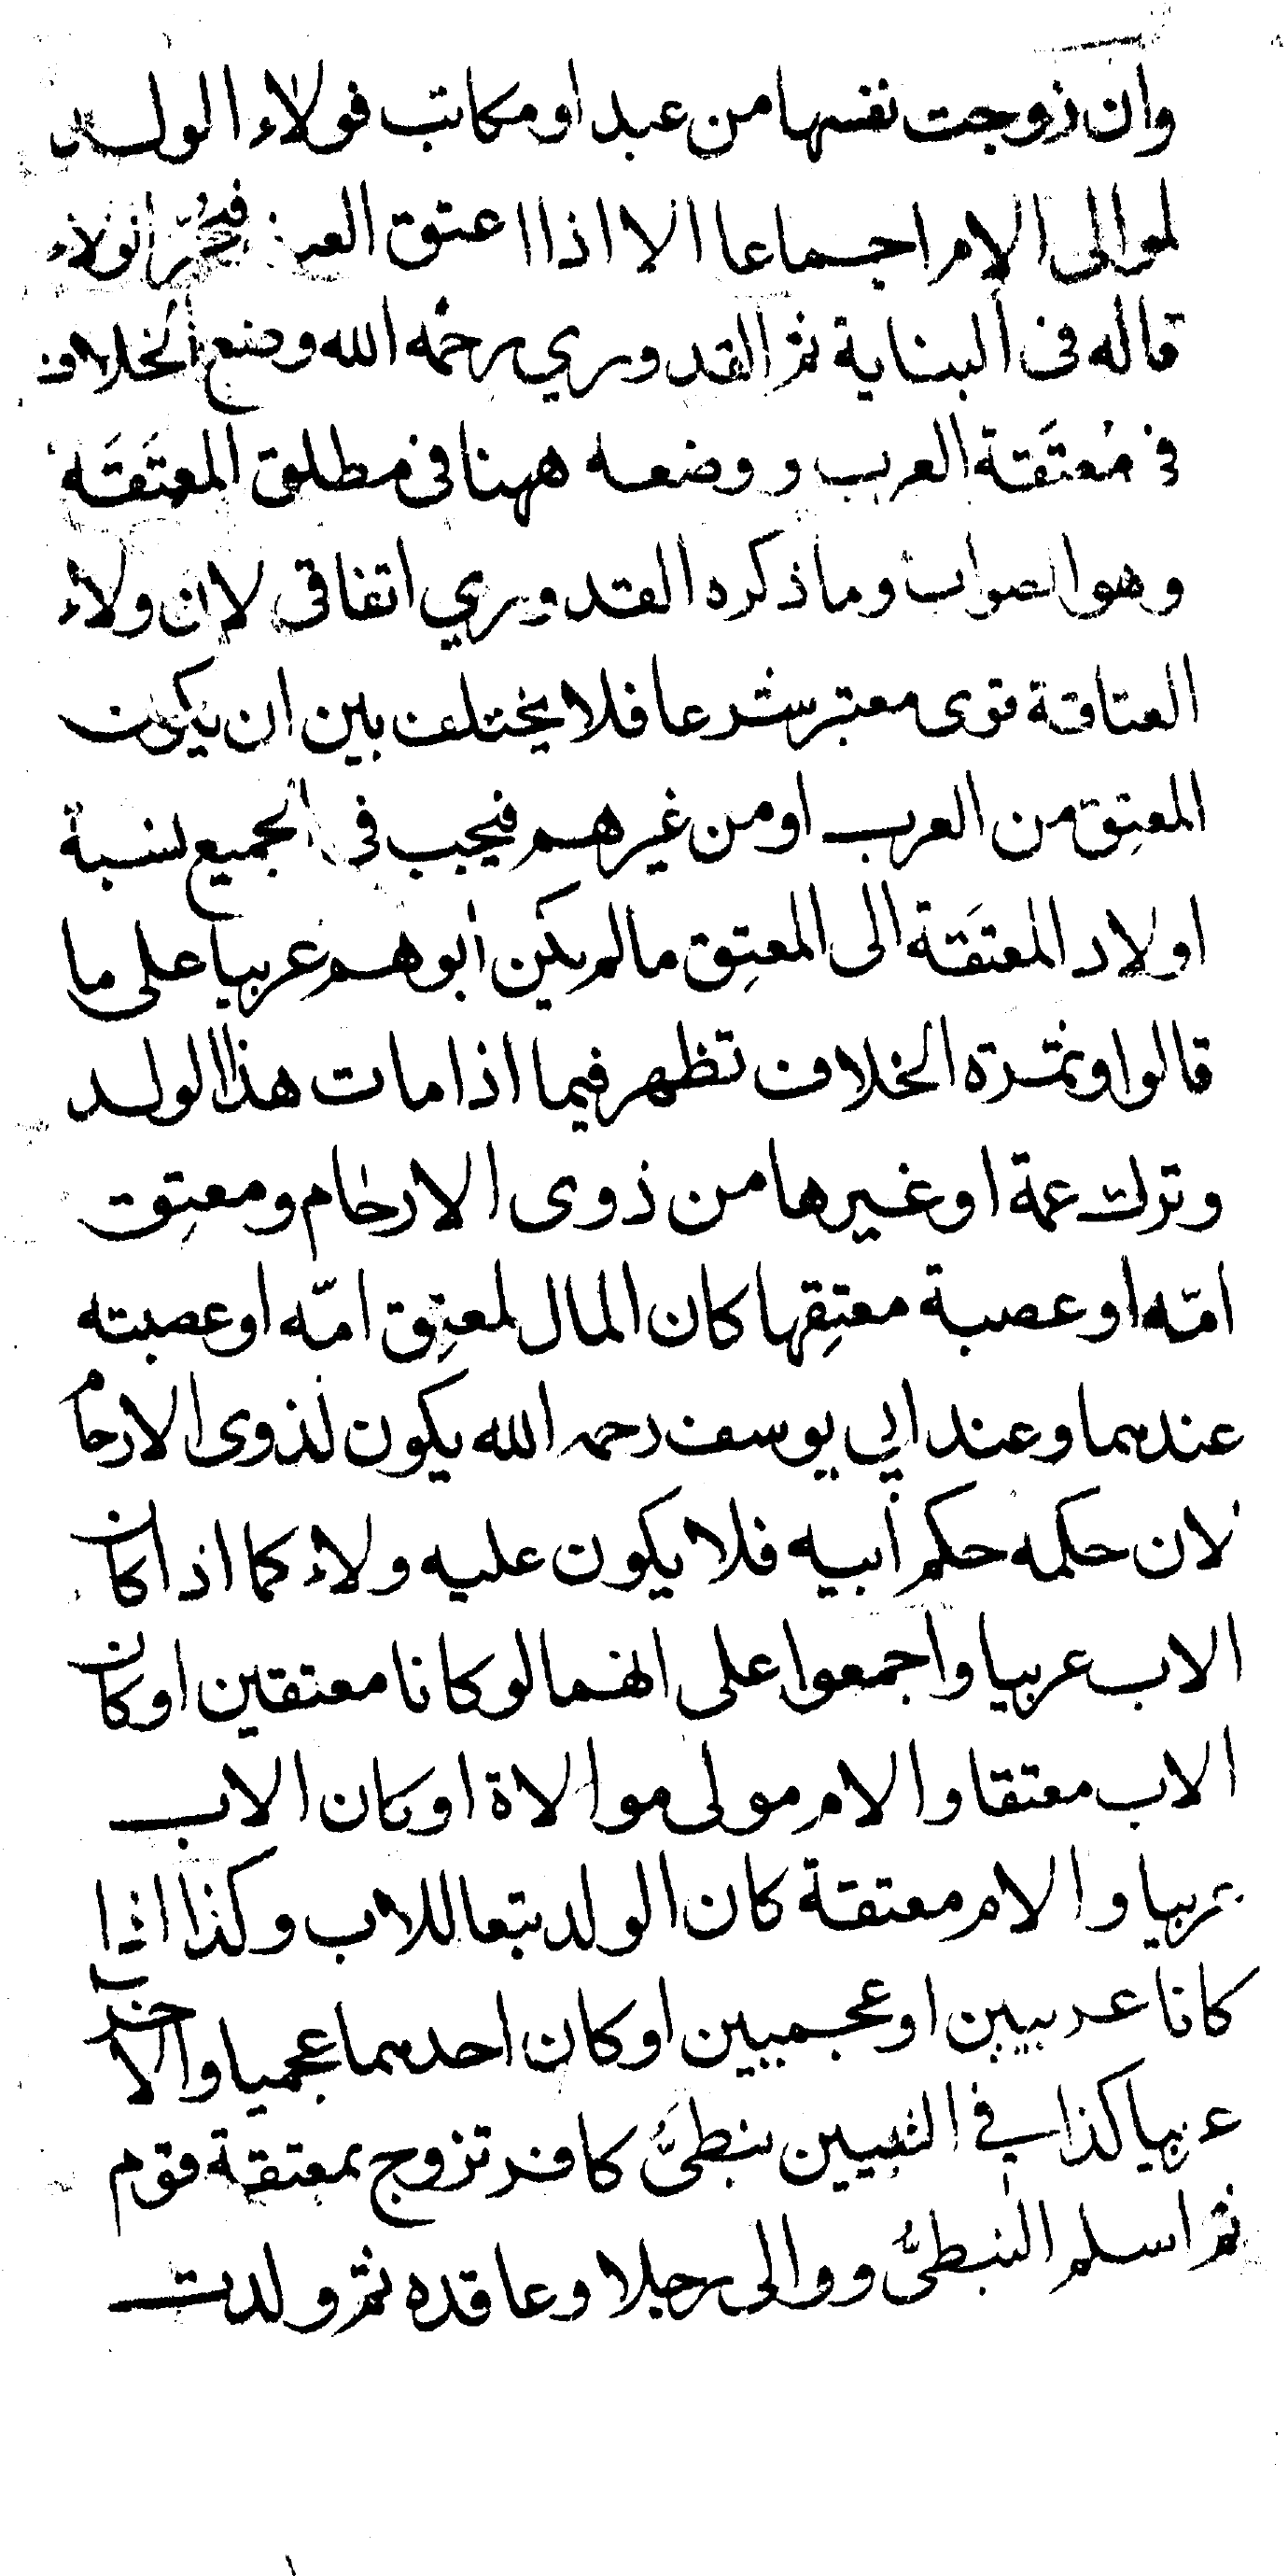 وان زوجت نفسها من عبد او مكاتب فولاء الولد
لموالى الام اجماعا الا اذا اعتق العبد فيجرّ الولاء
قاله فى البناية ثم القدوري رحمه الله وضع الخلاف
فى مُعتَقة العرب و وضعه ههنا فى مطلق المعتَقَة
وهو الصواب وما ذكره القدوري اتفاقى لان ولاء
العتاقة قوى معتبر شرعا فلا يختلف بين ان يكون
المعتِق من العرب او من غيرهم فيجب فى الجميع نسبة
اولاد المعتَقة الى المعتِق مالم يكن ابوهم عربيا على ما
قالوا وثمرة الخلاف تظهر فيما اذا مات هذا الولد
وترك عمة او غيرها من ذوى الارحام ومعتِق
امّه او عصبة معتِقها كان المال لمعتِق امّه او عصبته
عندهما وعند ابي يوسف رحمه الله يكون لذوى الارحام
لان حكمه حكم ابيه فلا يكون عليه ولاء كما اذا كان
الاب عربيا واجمعوا على انهما لو كانا معتقين او كان
الاب معتقا والام مولى موالاة او كان الاب
عربيا والام معتقة كان الولد تبعا للاب وكذا اذا
كانا عربيين او عجميين او كان احدهما عجميا والاخر
عربيا كذا في التبيين نبطىّ كافر تزوج بمعتقة قوم
ثم اسلم النبطىّ ووالى رجلا وعاقده ثم ولدت